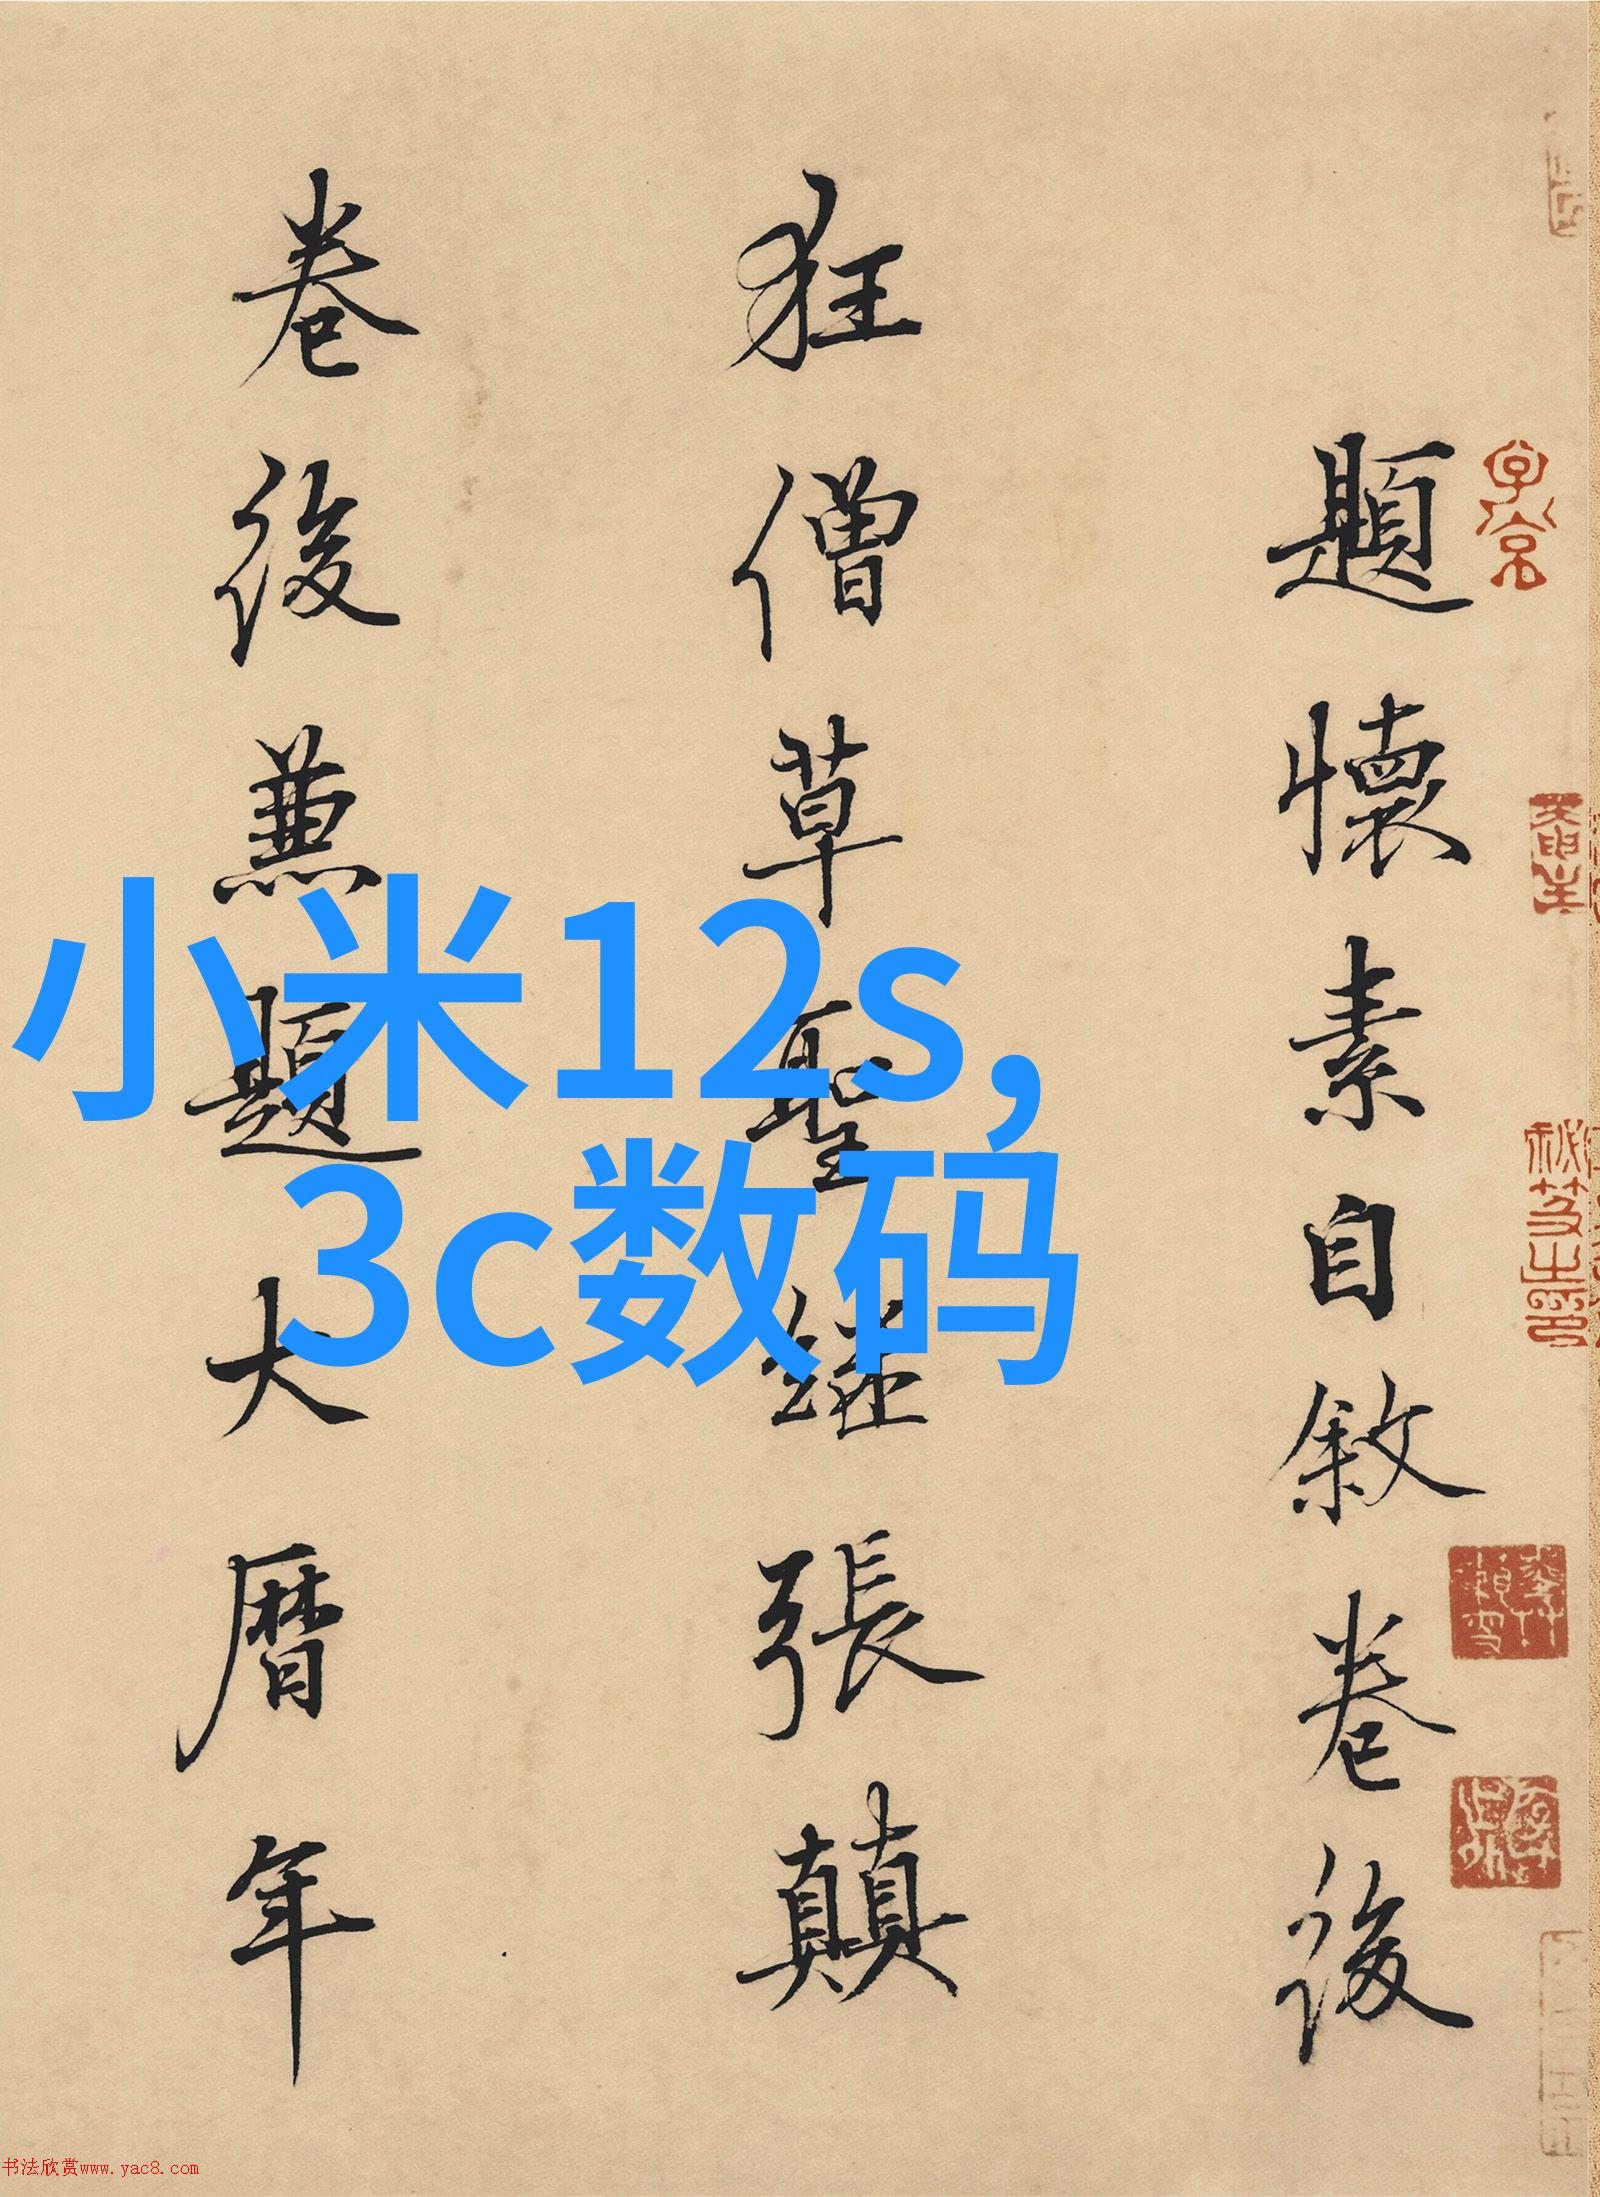 題懷素自敘卷後
狂僧草聖继張顛
卷後兼題大曆年
小米12s,
3c数码
书法欣赏www.yac8.com